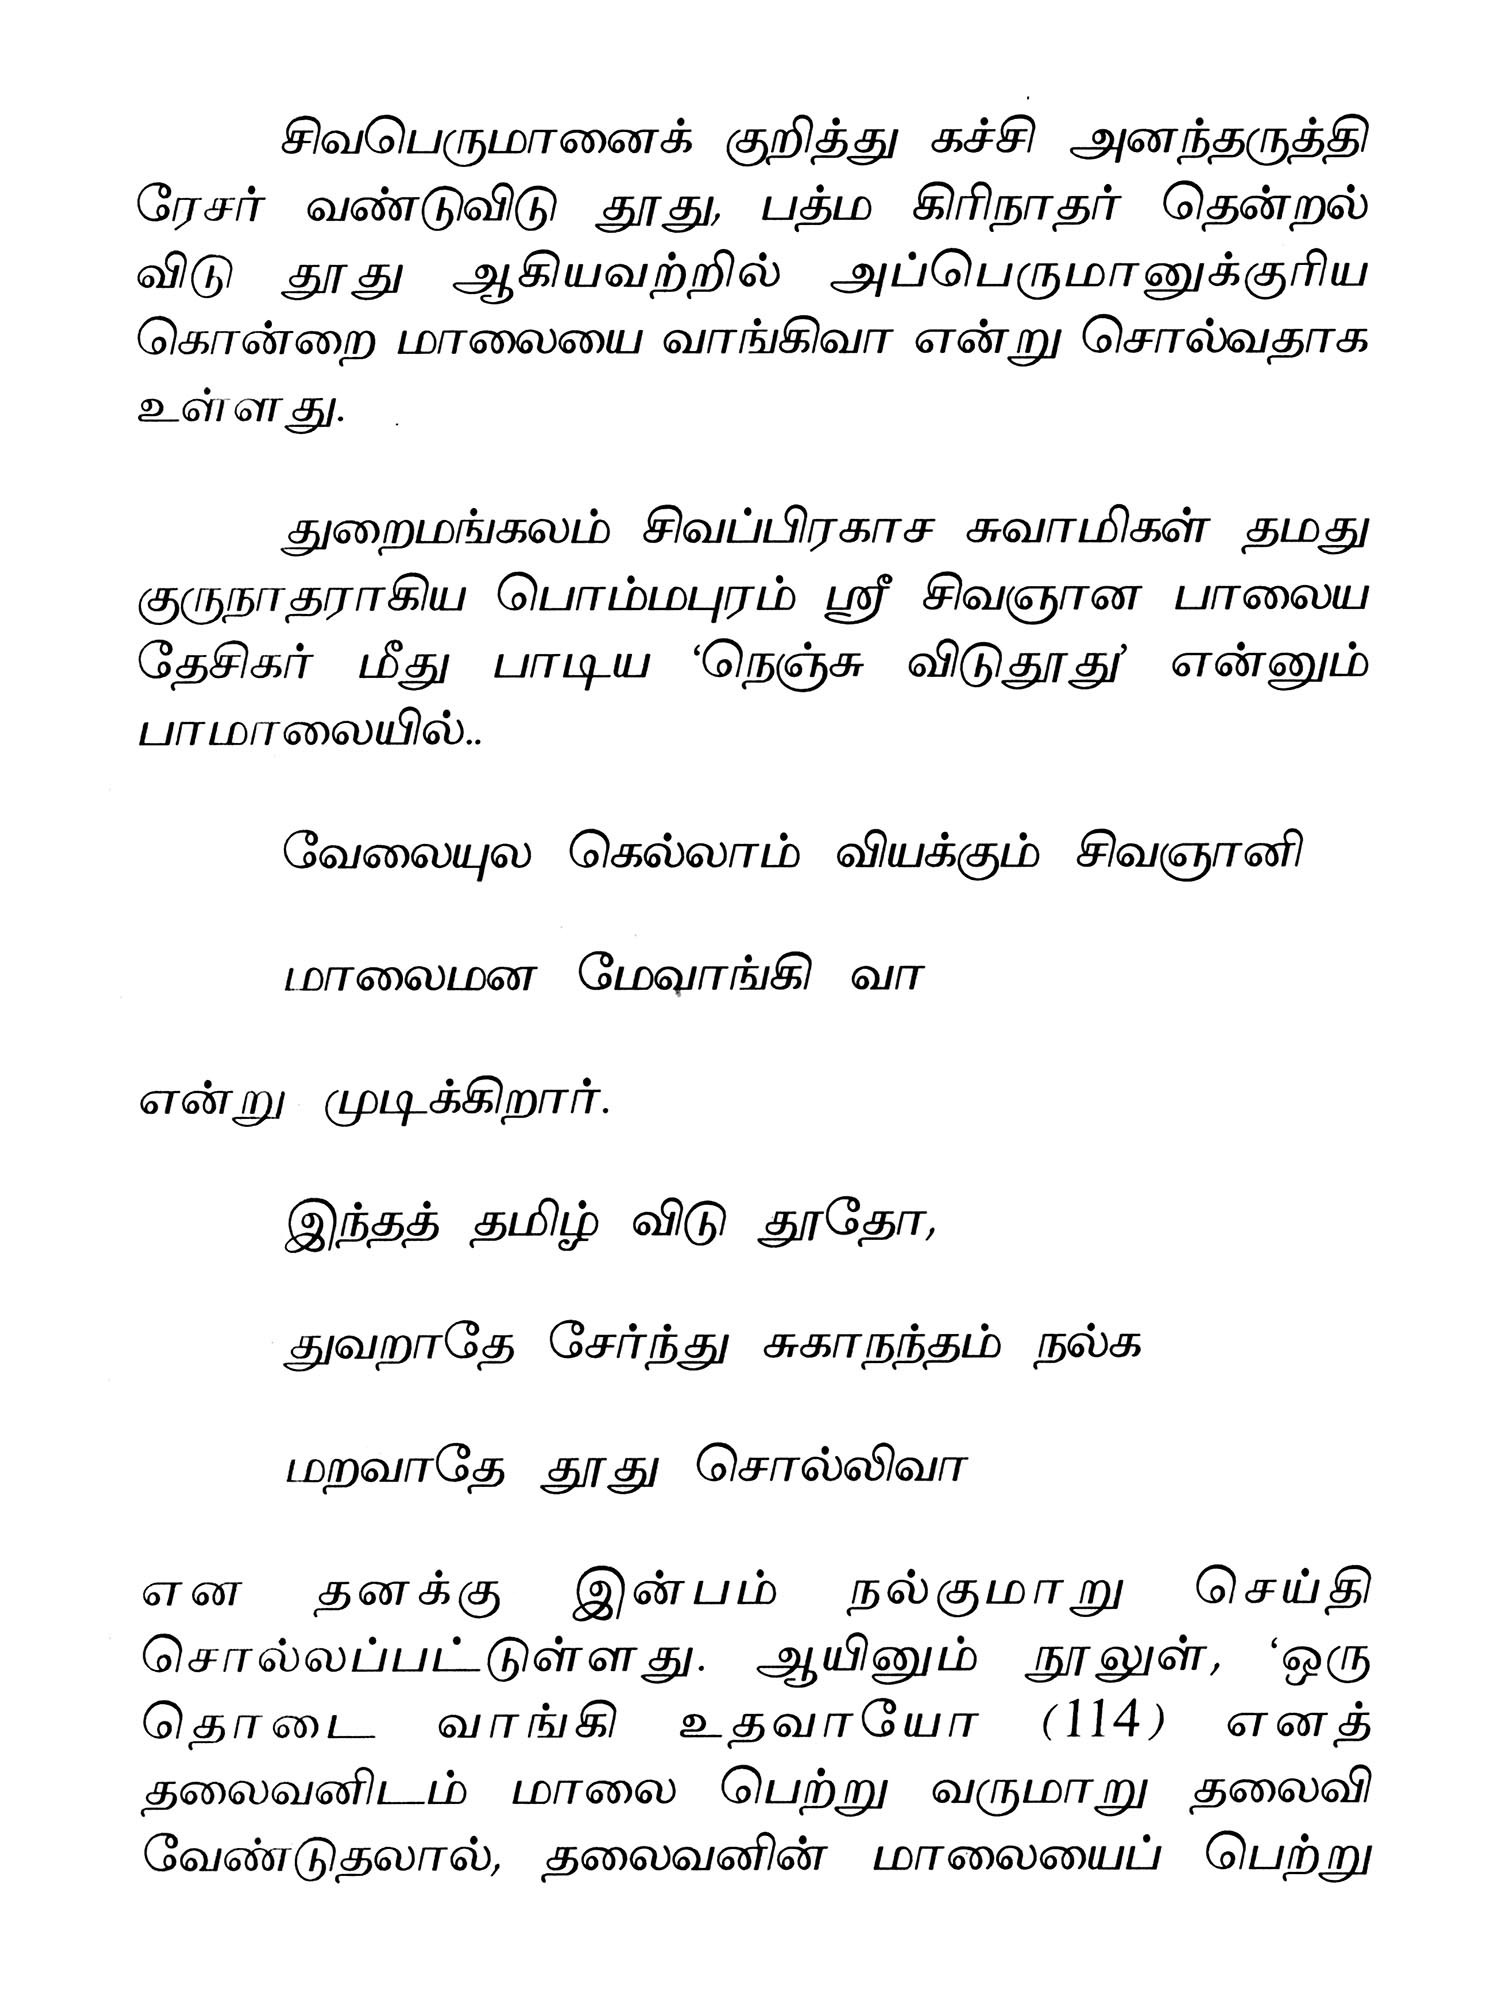 சிவபெருமானைக் குறித்து கச்சி அனந்தருத்தி
ரேசர் வண்டுவிடு தூது, பத்ம கிரிநாதர் தென்றல்
விடு தூது ஆகியவற்றில் அப்பெருமானுக்குரிய
கொன்றை மாலையை வாங்கிவா என்று சொல்வதாக
உள்ளது.
துறைமங்கலம் சிவப்பிரகாச சுவாமிகள் தமது
குருநாதராகிய பொம்மபுரம் ஸ்ரீ சிவஞான பாலைய
தேசிகர் மீது பாடிய ‘நெஞ்சு விடுதூது’ என்னும்
பாமாலையில்..
வேலையுல கெல்லாம் வியக்கும் சிவஞானி
மாலைமன மேவாங்கி வா
என்று முடிக்கிறார்.
இந்தத் தமிழ் விடு தூதோ,
துவறாதே சேர்ந்து சுகாநந்தம் நல்க
மறவாதே தூது சொல்லிவா
என தனக்கு இன்பம் நல்குமாறு செய்தி
சொல்லப்பட்டுள்ளது. ஆயினும் நூலுள், ‘ஒரு
தொடை வாங்கி உதவாயோ (114) எனத்
தலைவனிடம் மாலை பெற்று வருமாறு தலைவி
வேண்டுதலால், தலைவனின் மாலையைப் பெற்று